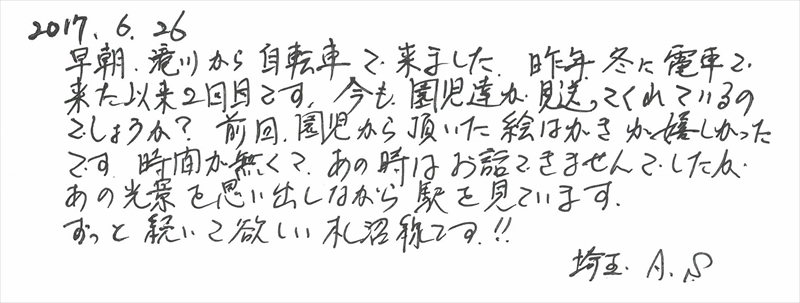 2017. 6. 26
早朝、滝川から自転車で来ました。昨年冬に電車で
来た以来2回目です。今も、園児達が見送ってくれているの
でしょうか？ 前回、園児から頂いた絵はがきが嬉しかった
です。時間が無くて、あの時はお話できませんでしたが、
あの光景を思い出しながら駅を見ています。
ずっと続いて欲しい札沼線です!!
埼玉. A.S